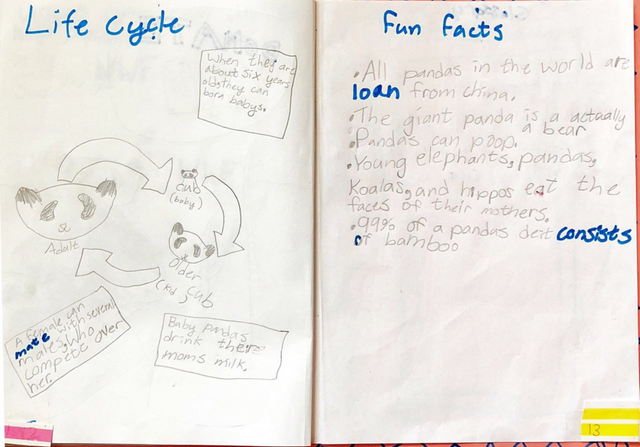 Life Cycle
When they are
about six years
old, they can
born babys.
cub
(baby)
Adalt
Older
cub
A female can
mate with several
males, who
compete over
her.
Baby pandas
drink there
moms milk.
Fun Facts
•All pandas in the world are
loan from china.
•The giant panda is a actually
a bear
•Pandas can poop.
•Young elephants, pandas,
Koalas, and hippos eat the
faces of their mothers.
•99% of a pandas deit consists
of bamboo
13